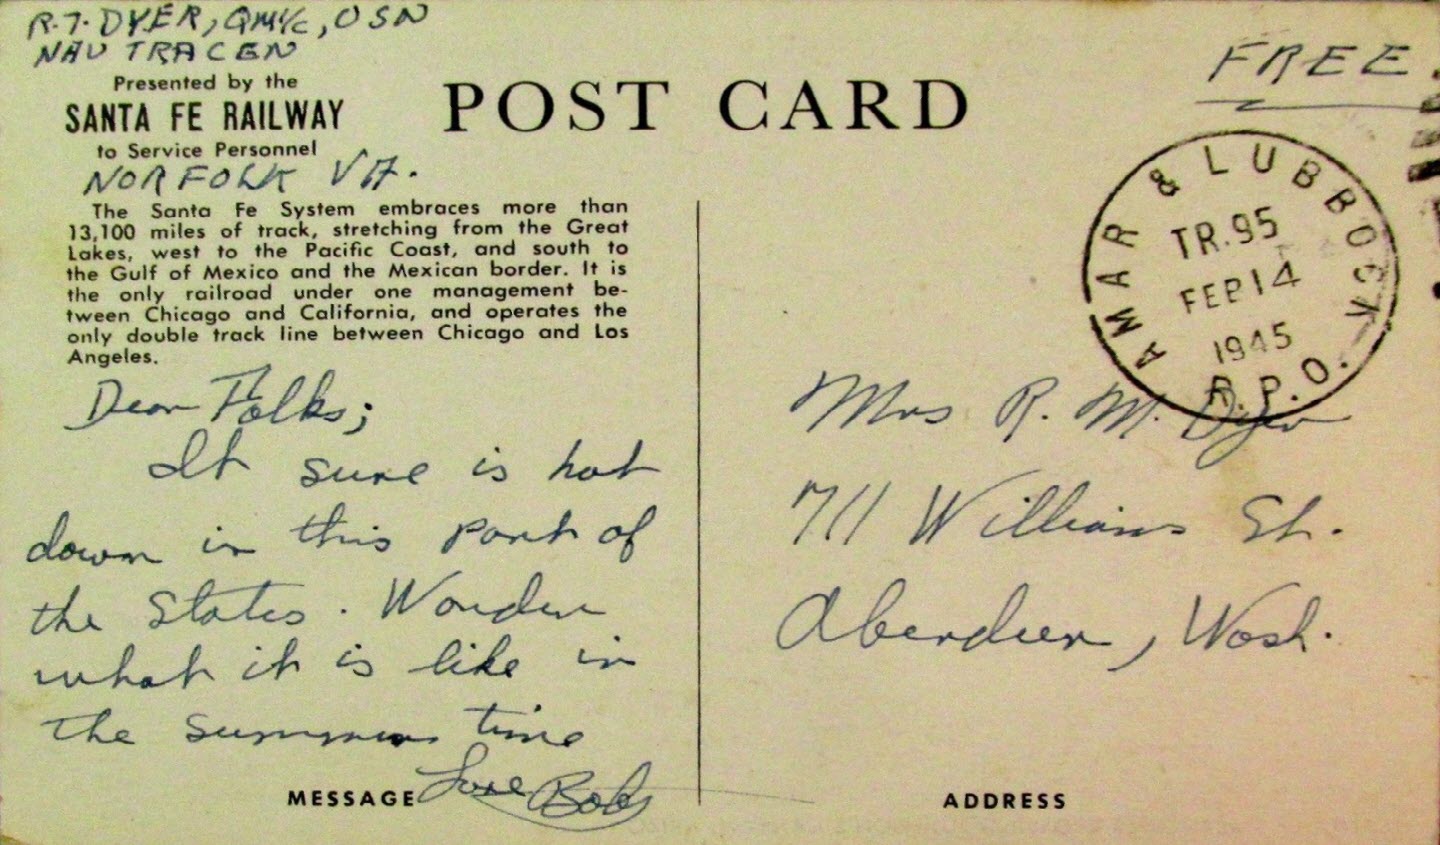 R.T. DYER, QM1/c, USN
NAV TRACEN
Presented by the
SANTA FE RAILWAY
to Service Personnel
NORFOLK VA.
The Santa Fe System embraces more than
13,100 miles of track, stretching from the Great
Lakes, west to the Pacific Coast, and south to
the Gulf of Mexico and the Mexican border. It is
the only railroad under one management be-
tween Chicago and California, and operates the
only double track line between Chicago and Los
Angeles.
Dear Folks;
It sure is hot
down in this part of
the States. Wonder
what it is like in
the summer time
Love Bob
MESSAGE
POST CARD
FREE.
AMAR & LUBBOCK
TR.95
FEB 14
1945
R.P.O.
Mrs R. M. Dyer
711 Williams St.
Aberdeen, Wash.
ADDRESS